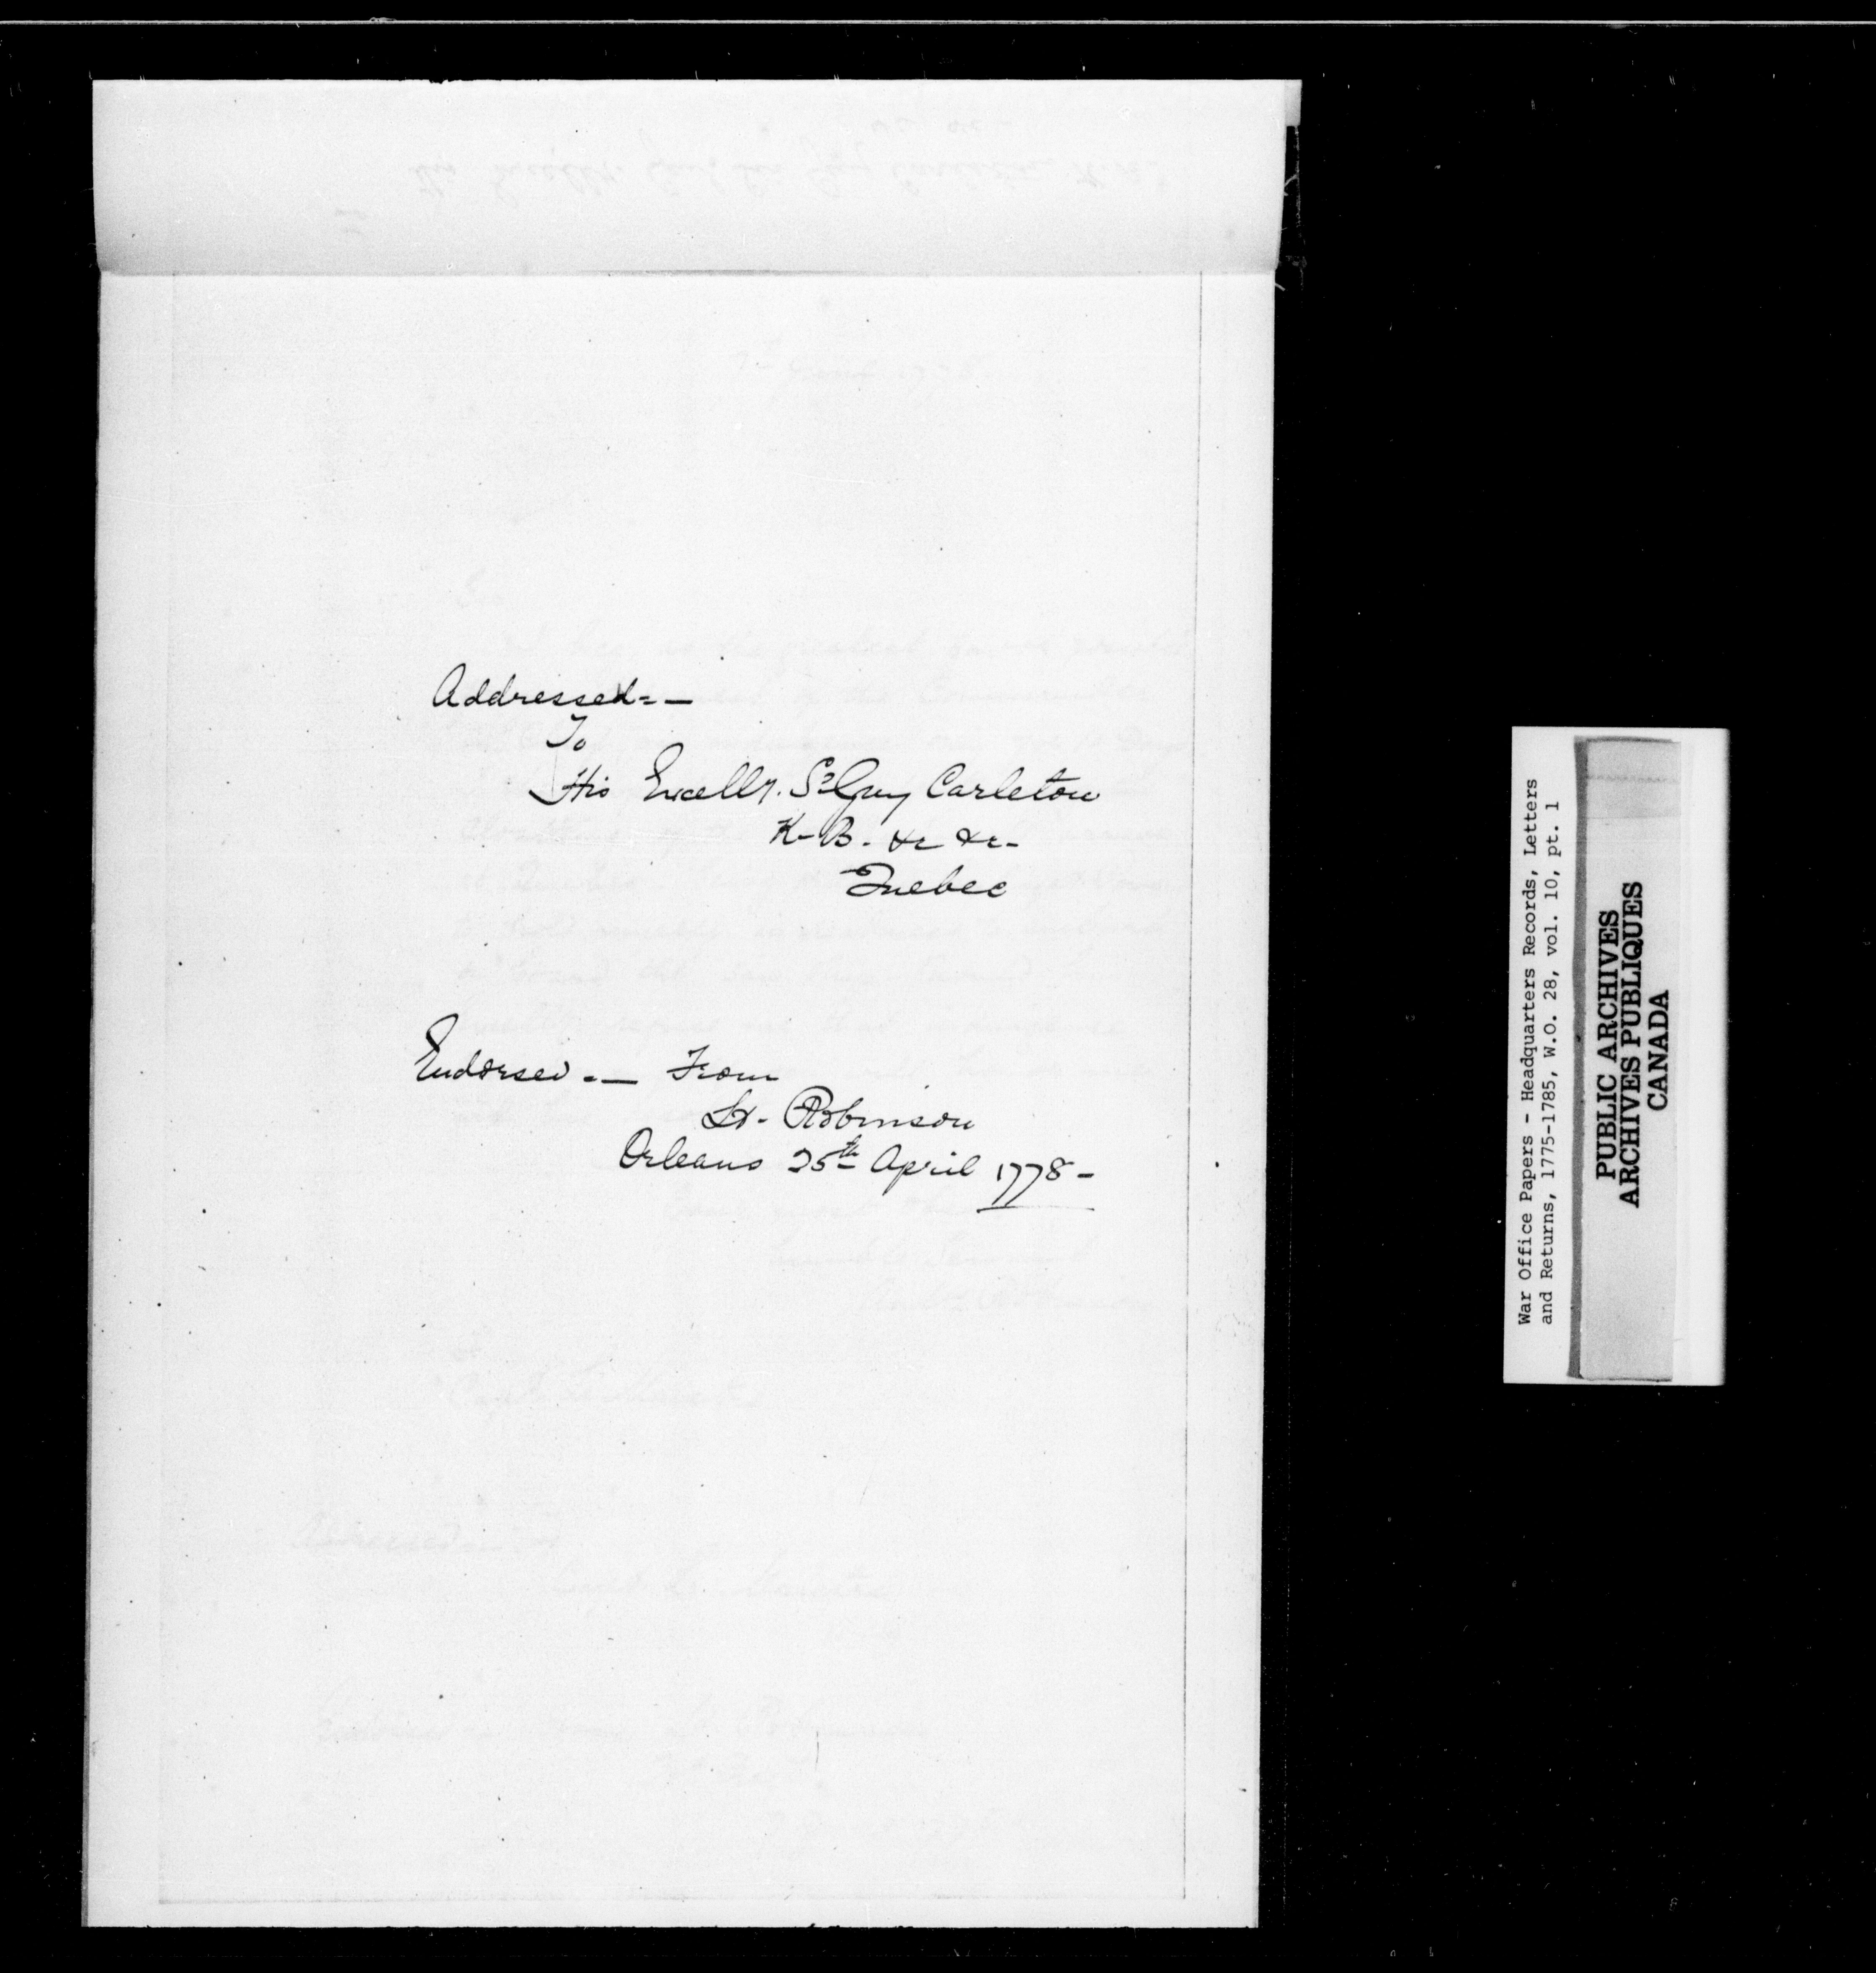 Addressed=—
To
His Excelly. Sr Guy Carleton
K-B. &c &c-
Quebec
Endorsed.— From
Lt. Robinson
Orleans 25th April 1778-
War Office Papers - Headquarters Records, Letters
and Returns, 1775-1785, W.O. 28, vol. 10, pt. 1
PUBLIC ARCHIVES
ARCHIVES PUBLIQUES
CANADA